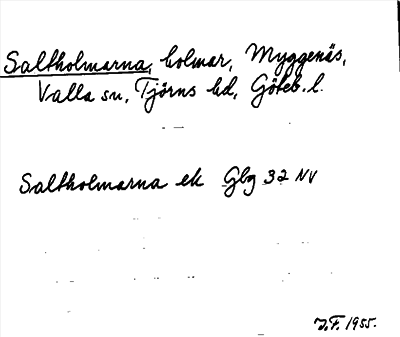 Saltholmarna, holmar, Myggenäs,
Valla sn, Tjörns hd, Göteb. l.
Saltholmarna ek Gbg 32 NV
J.F. 1955.